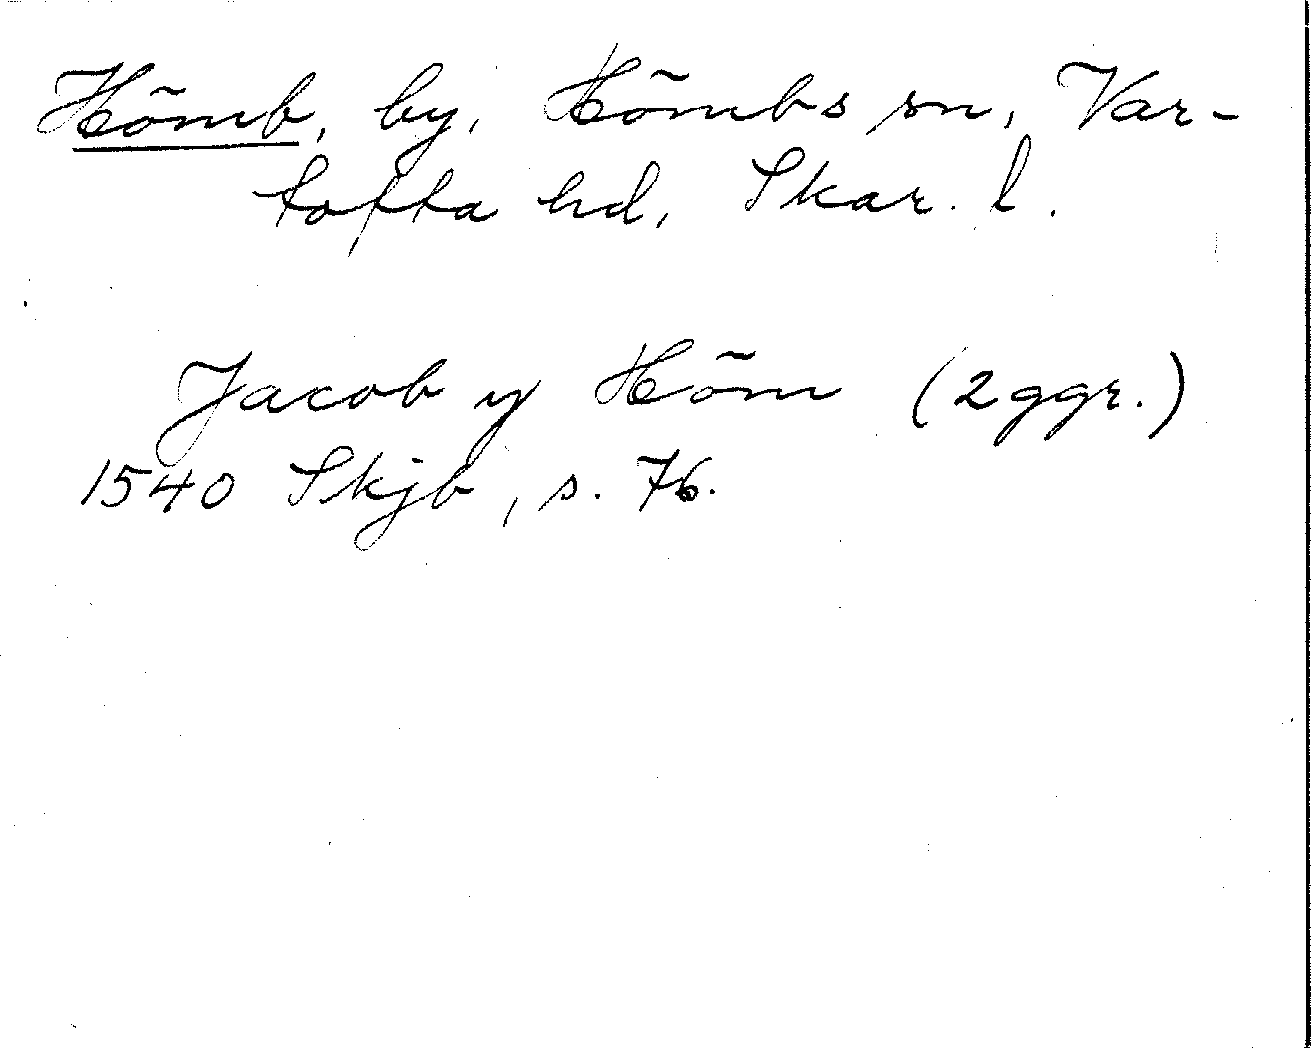 Hömb, by, Hömbs sn, Var-
tofta hd, Skar. l.
Jacob y Höm (2 ggr.)
1540 Skjb, s. 76.